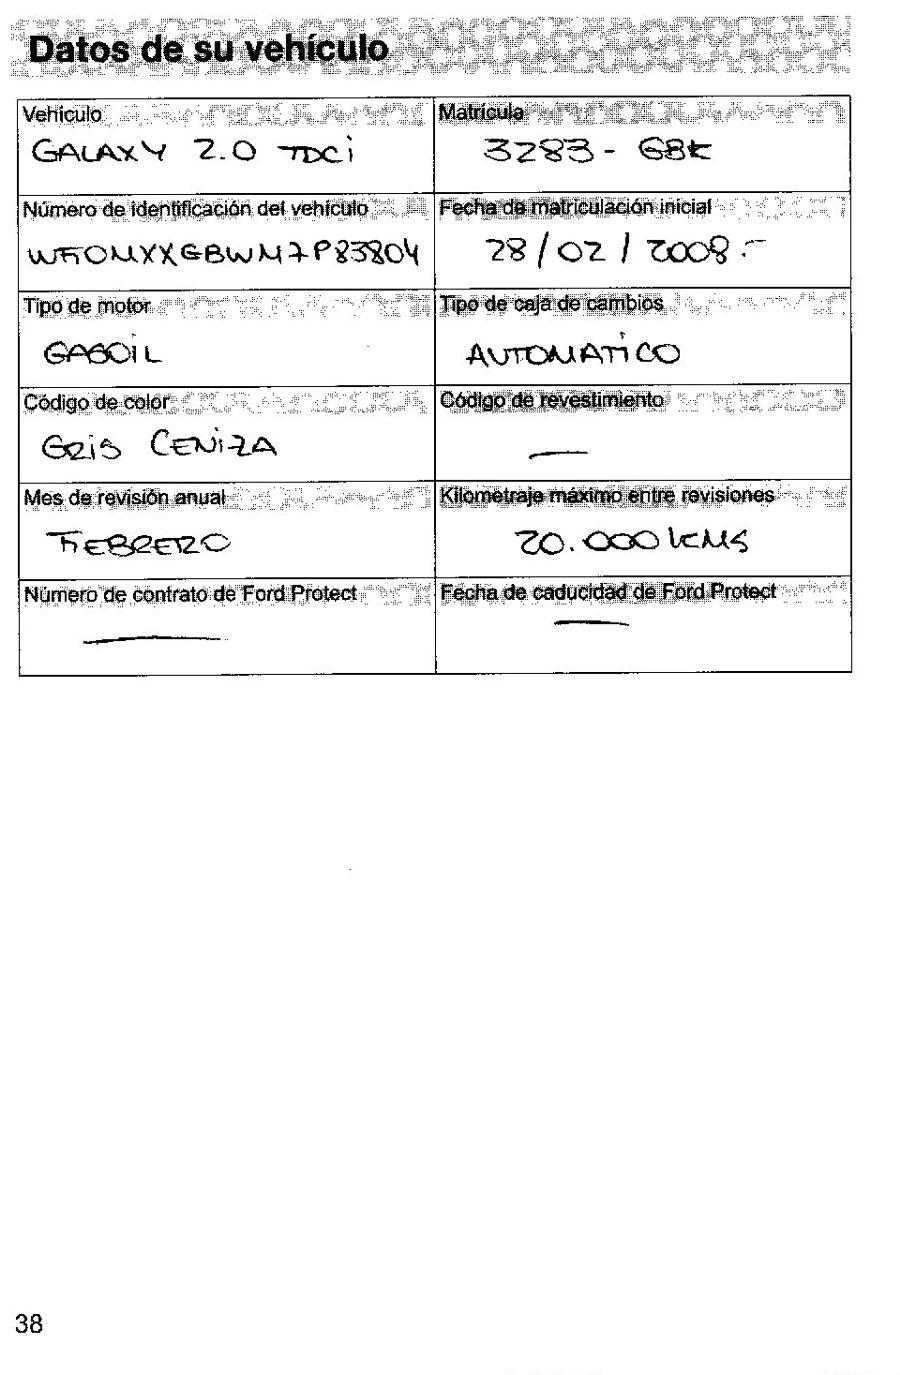 Datos de su vehículo
Vehículo
GALAXY 2.0 TDCi
Matrícula
3283 - GBK
Número de identificación del vehículo
WF0MXXGBWM7P83804
Fecha de matriculación inicial
28/02/2008.-
Tipo de motor
GASOIL
Tipo de caja de cambios
AUTOMATICO
Código de color
GRIS CENIZA
Código de revestimiento
—
Mes de revisión anual
FEBRERO
Kilometraje máximo entre revisiones
20.000 KMS
Número de contrato de Ford Protect
—
Fecha de caducidad de Ford Protect
—
38